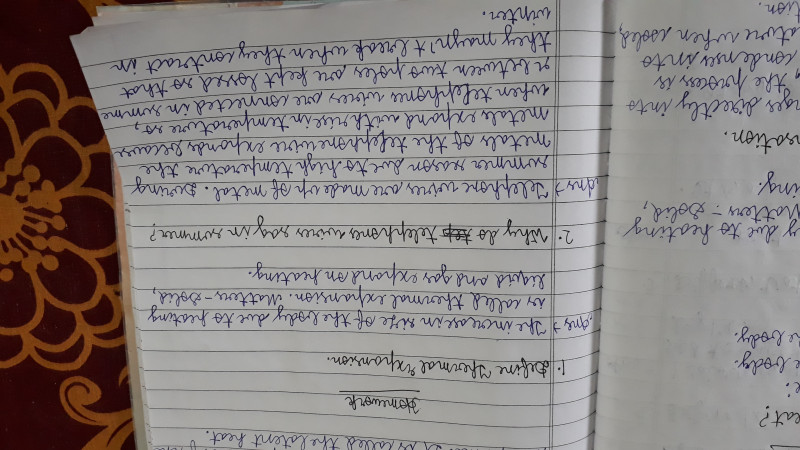 is called the latent heat.
Homework
1. Define Thermal Expansion.
Ans → The increase in size of the body due to heating
is called thermal expansion. Matters - Solid,
liquid and gas expand on heating.
2. Why do telephones wires sag in summer?
Ans → Telephone wires are made up of metal. During
summer season due to high temperature the
metals of the telephone wire expands because
metals expand with rise in temperature. so,
when telephone wires are connected in summe
r between two poles, are kept losed so that
they mayn't break when they contract in
winter.
eat?
e:
e body.
he body.
y due to heating
Matters - Solid,
ing.
nsation.
ges directly into
the process is
condenses into
ature when cooled,
tion.